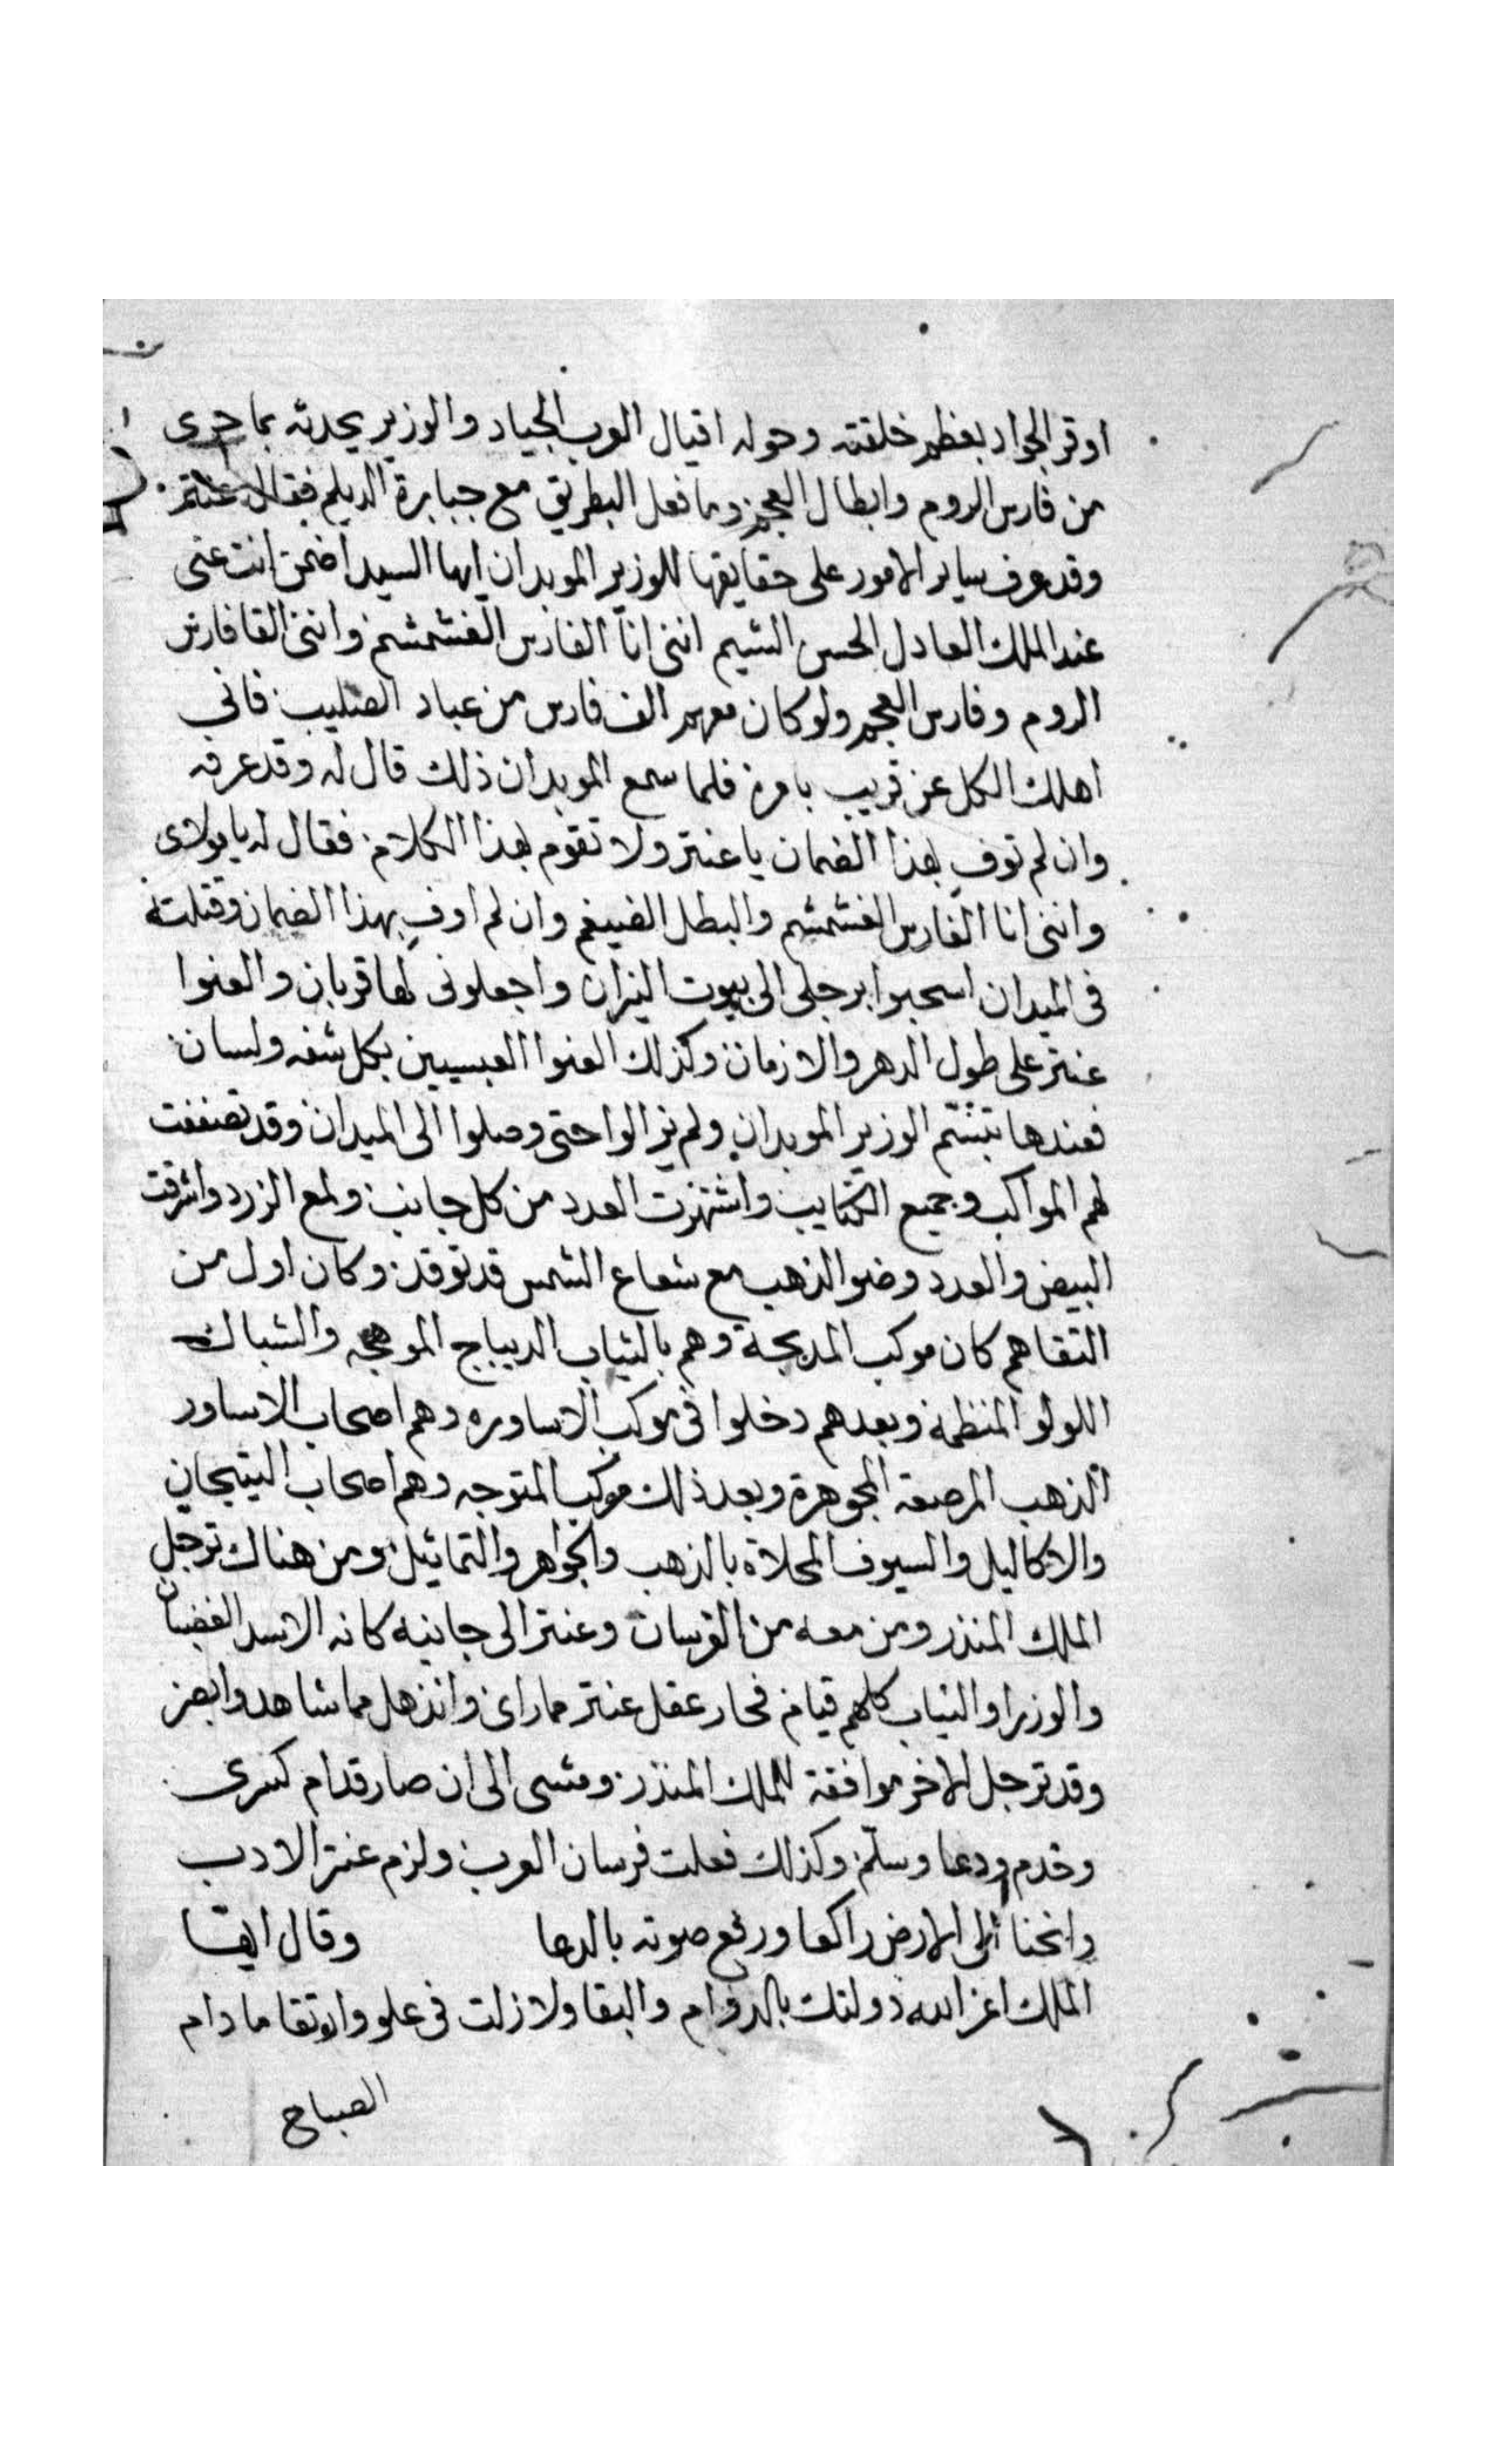 اوقر الجواد بعظم خلقته وحوله اقيال العرب الجياد والوزير يحدثه بما جرى
من فارس الروم وابطال العجم وما فعل البطريق مع جبابرة الديلم فقال عنتر
وقد عرف ساير الامور على حقايقها للوزير الموبدان ايها السيد اضمن انت عنى
عند الملك العادل الحسن الشيم اننى انا الفارس الغشمشم واننى القا فارس
الروم وفارس العجم ولو كان معهم الف فارس من عباد الصليب فاني
اهلك الكل عن قريب بامره فلما سمع الموبدان ذلك قال له وقد عرفه
وان لم توف بهذا الضمان يا عنتر ولا تقوم بهذا الكلام فقال له يا مولاى
واننى انا الفارس الغشمشم والبطل الضيغم وان لم اوف بهذا الضمان وقتلت
فى الميدان اسحبوا برجلى الى بيوت النيران واجعلونى لها قربان والعنوا
عنتر على طول الدهر والازمان وكذلك العنوا العبسيين بكل شفه ولسان
فعندها تبسم الوزير الموبدان ولم يزالوا حتى وصلوا الى الميدان وقد تصففت
لهم المواكب وجميع الكتايب واشتهرت العدد من كل جانب ولمع الزرد واشرقت
البيض والعدد وضو الذهب مع شعاع الشمس قد توقد وكان اول من
التقاهم كان موكب المدبجة وهم بالثياب الديباج الموهجه والشباك
اللولو المنظمة وبعدهم دخلوا فى موكب الاساوره وهم اصحاب الاساور
الذهب المرصعة المجوهرة وبعد ذلك موكب المتوجه وهم اصحاب التيجان
والاكاليل والسيوف المحلاة بالذهب والجواهر والتماثيل ومن هناك ترجل
الملك المنذر ومن معه من الفرسان وعنتر الى جانبه كانه الاسد الغضبان
والوزرا والنياب كلهم قيام فحار عقل عنتر مما راى وانذهل مما شاهد وابصر
وقد ترجل الاخر موافقة للملك المنذر ومشى الى ان صار قدام كسرى
وخدم ودعا وسلم وكذلك فعلت فرسان العرب ولزم عنتر الادب
وانحنا الى الارض راكعا ورفع صوته بالدعا وقال ايها
الملك اعز الله دولتك بالدوام والبقا ولا زلت فى علو وارتقا ما دام
الصباح